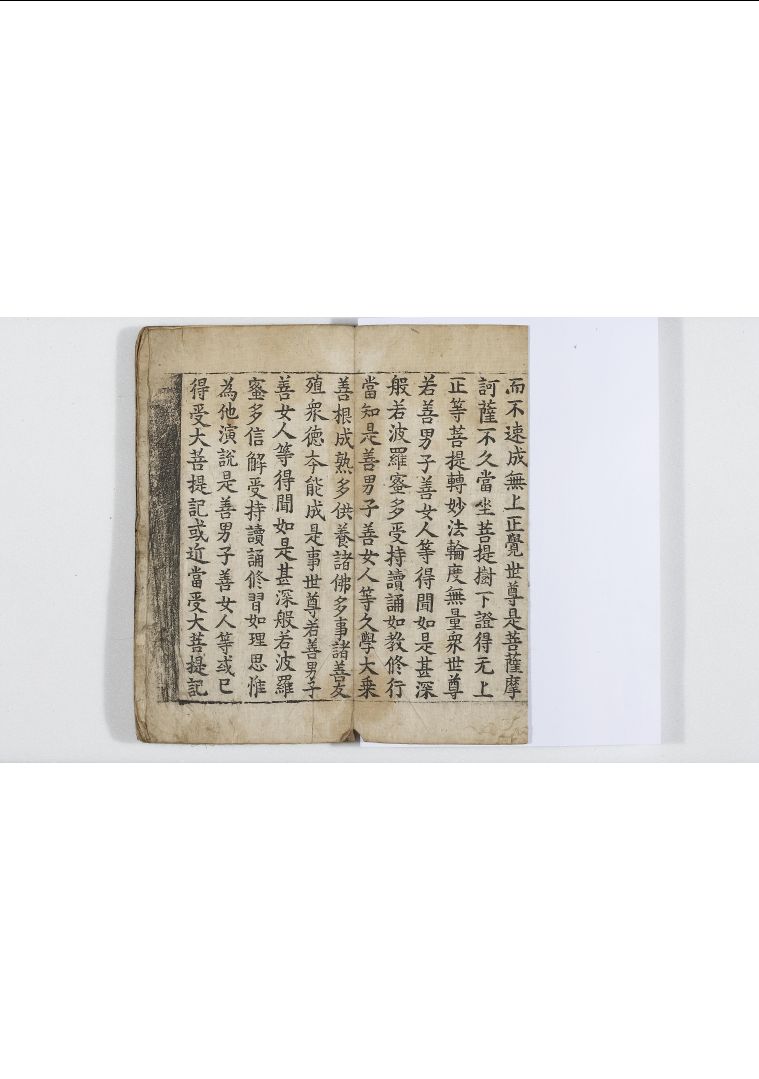 而不速成無上正覺世尊是菩薩摩
訶薩不久當坐菩提樹下證得无上
正等菩提轉妙法輪度無量衆世尊
若善男子善女人等得聞如是甚深
般若波羅蜜多受持讀誦如教修行
當知是善男子善女人等久學大乗
善根成熟多供養諸佛多事諸善友
殖衆徳夲能成是事世尊若善男子
善女人等得聞如是甚深般若波羅
蜜多信解受持讀誦修習如理思惟
為他演說是善男子善女人等或已
得受大菩提記或近當受大菩提記